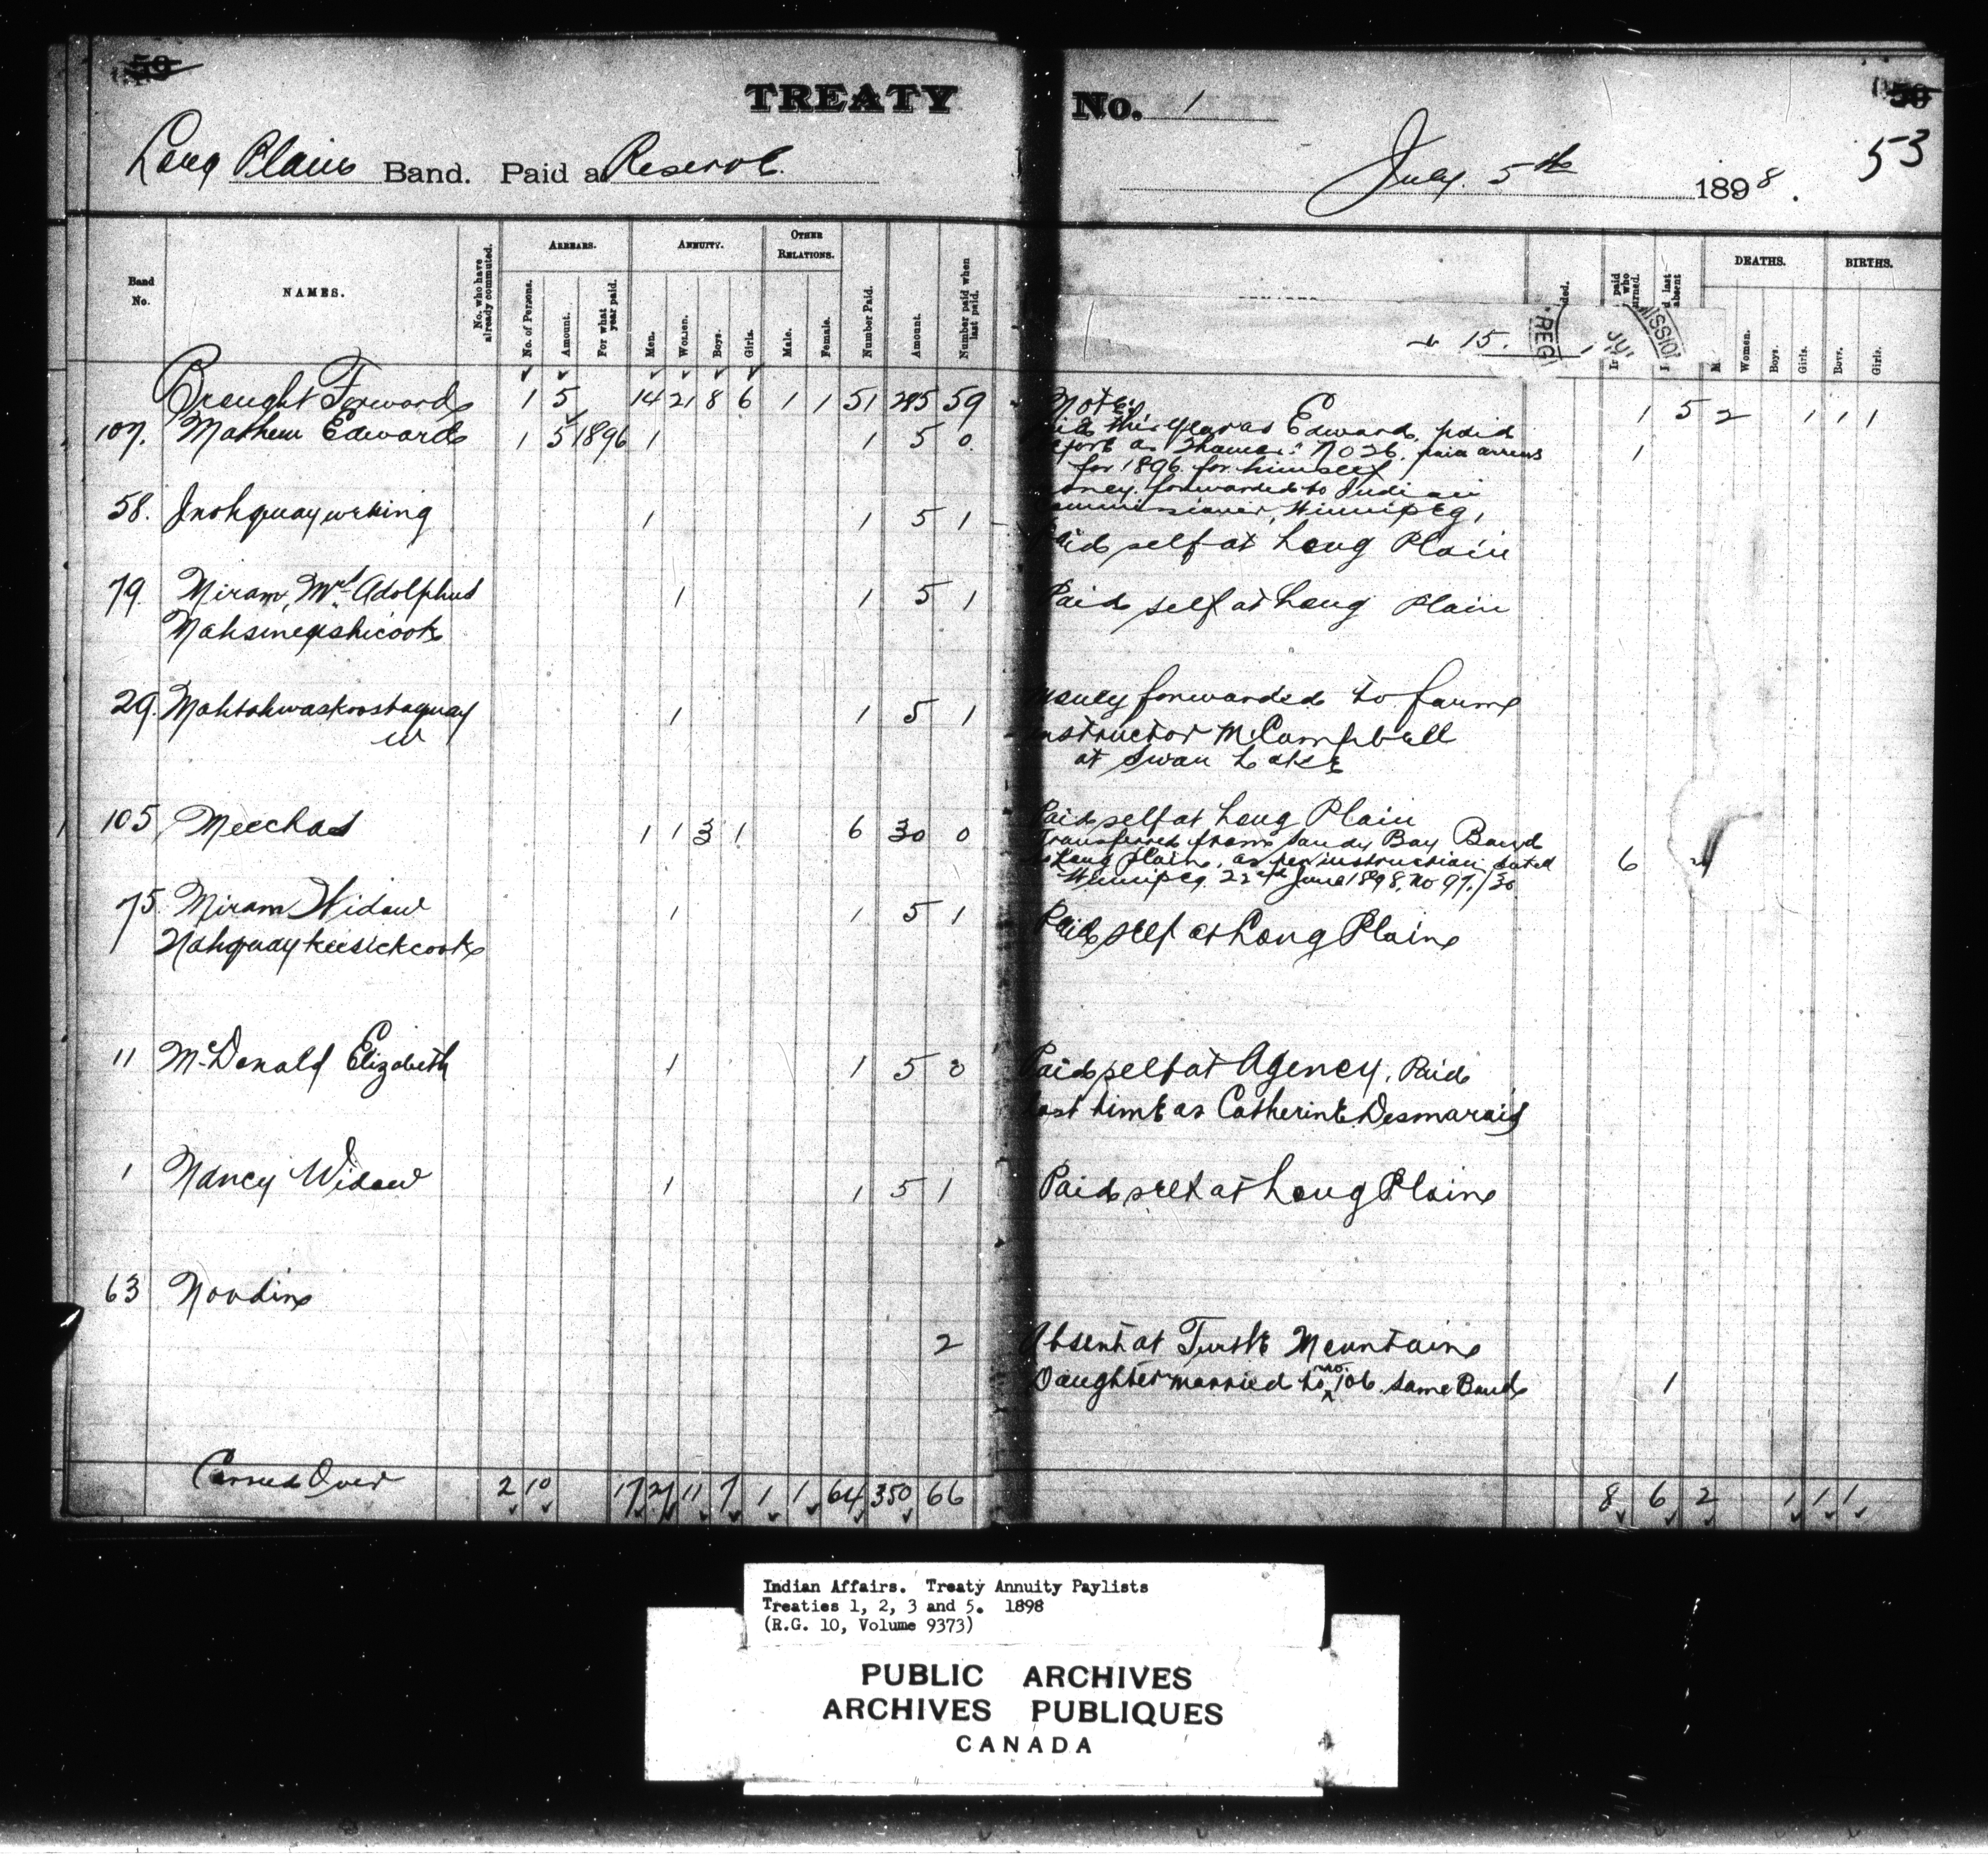 59
TREATY No. 1
59
53
Long Plains Band. Paid at Reserve. July 5th 1898.
Band No.
NAMES.
No. who have already commuted.
ARREARS.
No. of Persons.
Amount.
For what year paid.
ANNUITY.
Men.
Women.
Boys.
Girls.
OTHER RELATIONS.
Male.
Female.
Number Paid.
Amount.
Number paid when last paid.
15.
REG
JU
MISSION
DEATHS.
Women.
Boys.
Girls.
BIRTHS.
Boys.
Girls.
Brought Forward 1 5 14 21 8 6 1 1 51 285 59 Note: 1 5 2 1 1 1
107. Mathew Edwards 1 5 1896 1 1 5 0 this year as Edward, paid
as No 26. paid arrears 1
for 1896 for himself
58. 1 1 5 1 Money forwarded to Indian
Commissioner, Winnipeg,
Paid self at Long Plain
79. Miram, Mrs Adolphus 1 1 5 1 Paid self at Long Plain
Mahsinegishicook
29. Mahtahwaskoostaquay 1 1 5 1 Money forwarded to farm
W Instructor McCampbell
at Swan Lake
105 Meechas 1 1 3 1 6 30 0 Paid self at Long Plain
Transferred from Sandy Bay Band
to Long Plain, as per instruction dated 6
Winnipeg 22nd June 1898, No 97/30
75. Miram Widow 1 1 5 1 Paid self at Long Plain
Nahquaykeesickcook
11 McDonald Elizabeth 1 1 5 0 Paid self at Agency, Paid
last time as Catherine Desmarais
1 Nancy Widow 1 1 5 1 Paid self at Long Plain
63 Noudin
2 Absent at Turtle Mountain
Daughter married to no. 106 same Band 1
Carried Over 2 10 17 27 11 7 1 1 64 350 66 8 6 2 1 1 1
Indian Affairs. Treaty Annuity Paylists
Treaties 1, 2, 3 and 5. 1898
(R.G. 10, Volume 9373)
PUBLIC ARCHIVES
ARCHIVES PUBLIQUES
CANADA